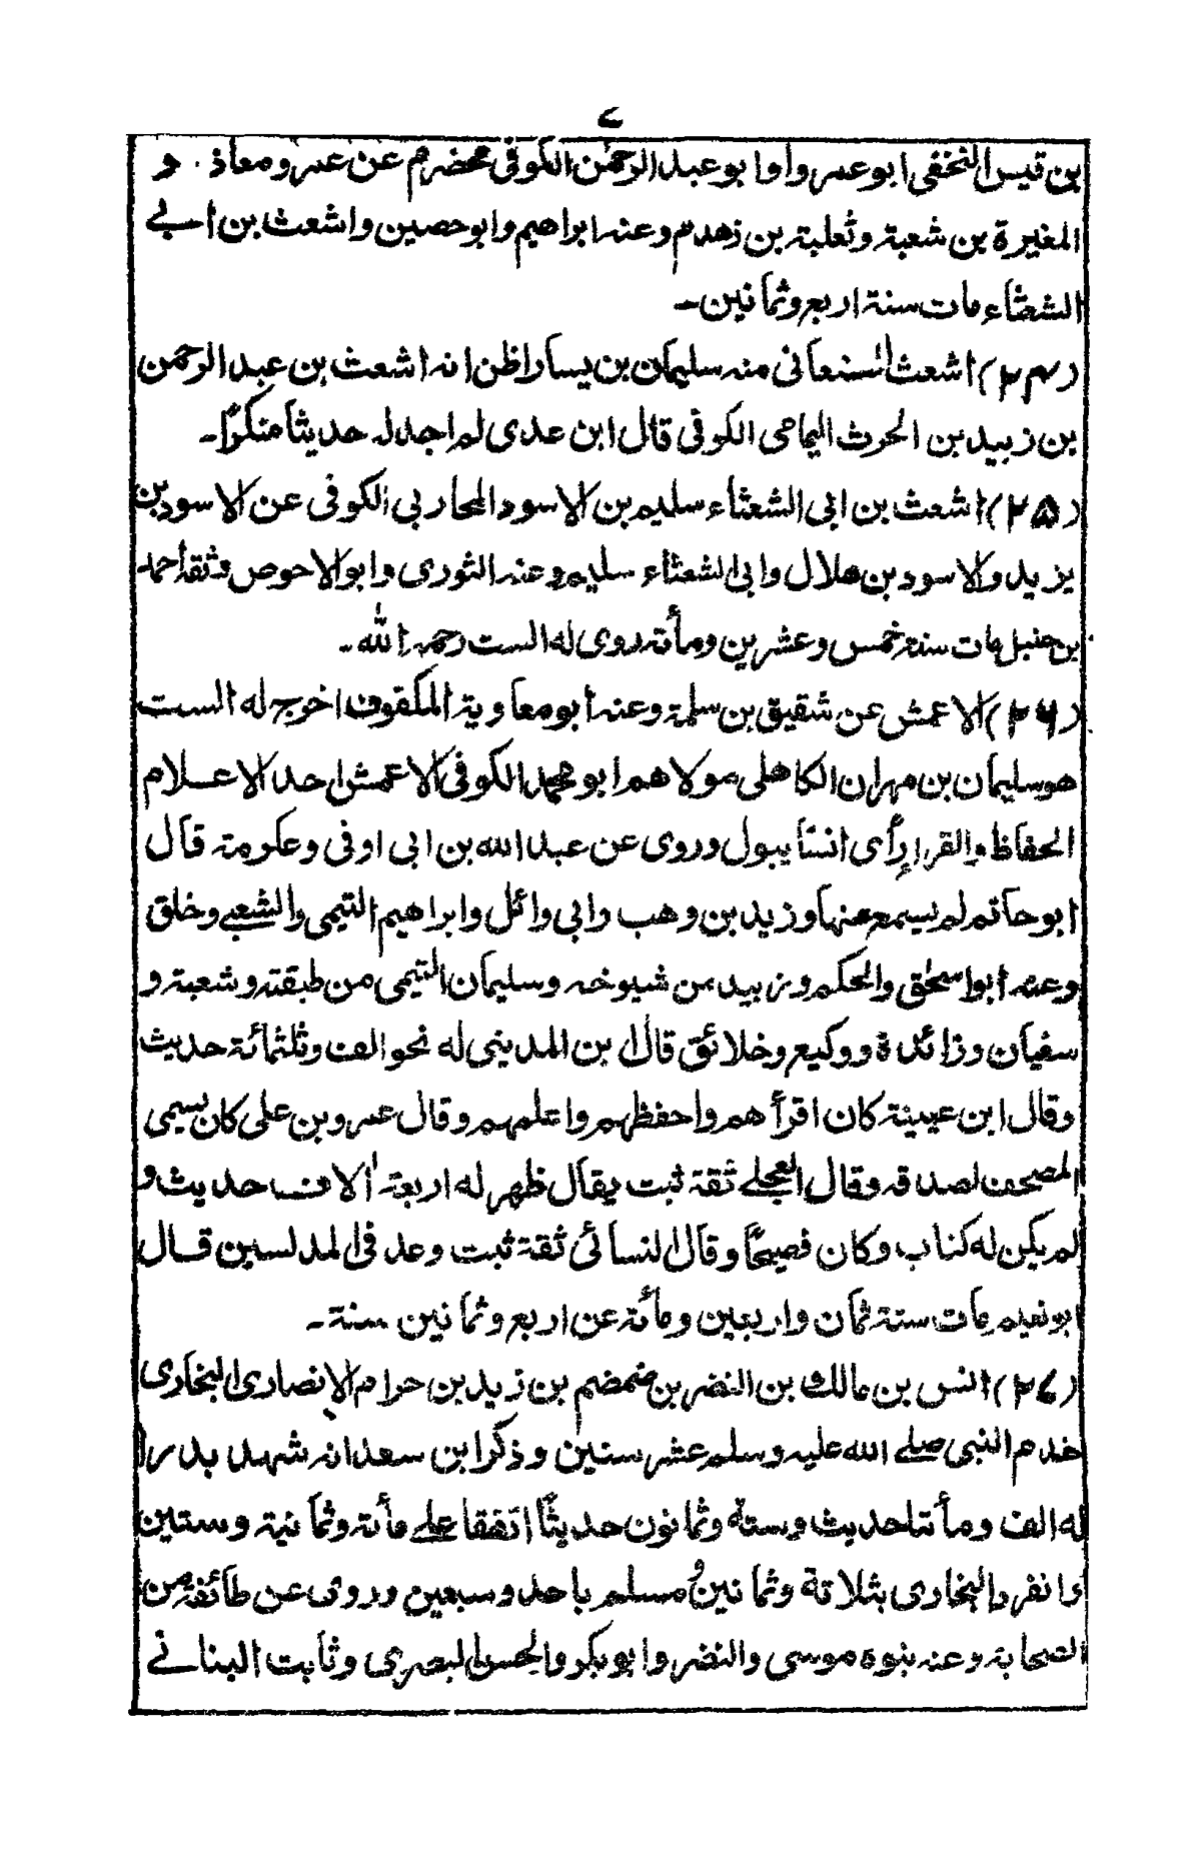 ۷
بن قيس النخفى ابو عمرو او ابو عبد الرحمٰن الكوفى مخضرم عن عمر و معاذ و
المغيرة بن شعبة و ثعلبة بن زهدم وعنه ابراهيم وابو حصين واشعث بن ابے
الشعثاء مات سنة اربع وثمانين۔
(۲۴) اشعث الصنعانى منه سليمان بن يسار اظن انه اشعث بن عبد الرحمن
بن زبيد بن الحرث اليمامى الكوفى قال ابن عدى لم اجد له حديثا منكرًا۔
(۲۵) اشعث بن ابى الشعثاء سليم بن الاسود المحاربى الكوفى عن الاسود بن
يزيد والاسود بن هلال وابى الشعثاء سليم وعنه الثورى وابو الاحوص وثقه احمد
بن حنبل مات سنة خمس وعشرين ومأته روى له الست رحمه الله۔
(۲۶) الاعمش عن شقيق بن سلمة وعنه ابو معاوية المكفوف اخرج له الست
هو سليمان بن مهران الكاهلى مولاهم ابو محمد الكوفى الاعمش احد الاعلام
الحفاظ والقرا رأى انسًا يبول وروى عن عبد الله بن ابى اوفى وعكرمة قال
ابو حاتم لم يسمع عنهما وزيد بن وهب وابى وائل وابراهيم التيمى والشعبے وخلق
وعنه ابو اسحٰق والحكم وزبيد من شيوخه وسليمان التيمى من طبقته وشعبة و
سفيان وزائدة ووكيع وخلائق قال ابن المدينى له نحو الف وثلثمائة حديث
وقال ابن عيينة كان اقرأهم واحفظهم واعلمهم وقال عمرو بن على كان يسمى
المصحف لصدقه وقال العجلے ثقة ثبت يقال ظهر له اربعة الاف حديث و
لم يكن له كتاب وكان فصيحًا وقال النسائى ثقة ثبت وعد فى المدلسين قال
ابو نعيم مات سنة ثمان واربعين ومائة عن اربع وثمانين سنة۔
(۲۷) انس بن مالك بن النضر بن ضمضم بن زيد بن حرام الانصارى البخارى
خدم النبى صلے الله عليه وسلم عشر سنين وذكر ابن سعد انه شهد بدرا
له الف ومأتا حديث وستة وثمانون حديثًا اتفقا علے مأته وثمانية وستين
وانفرد البخارى بثلاثة وثمانين ومسلم باحد وسبعين وروى عن طائفة من
الصحابة وعنه بنوه موسى والنضر وابو بكر والحسن البصرى وثابت البنانے